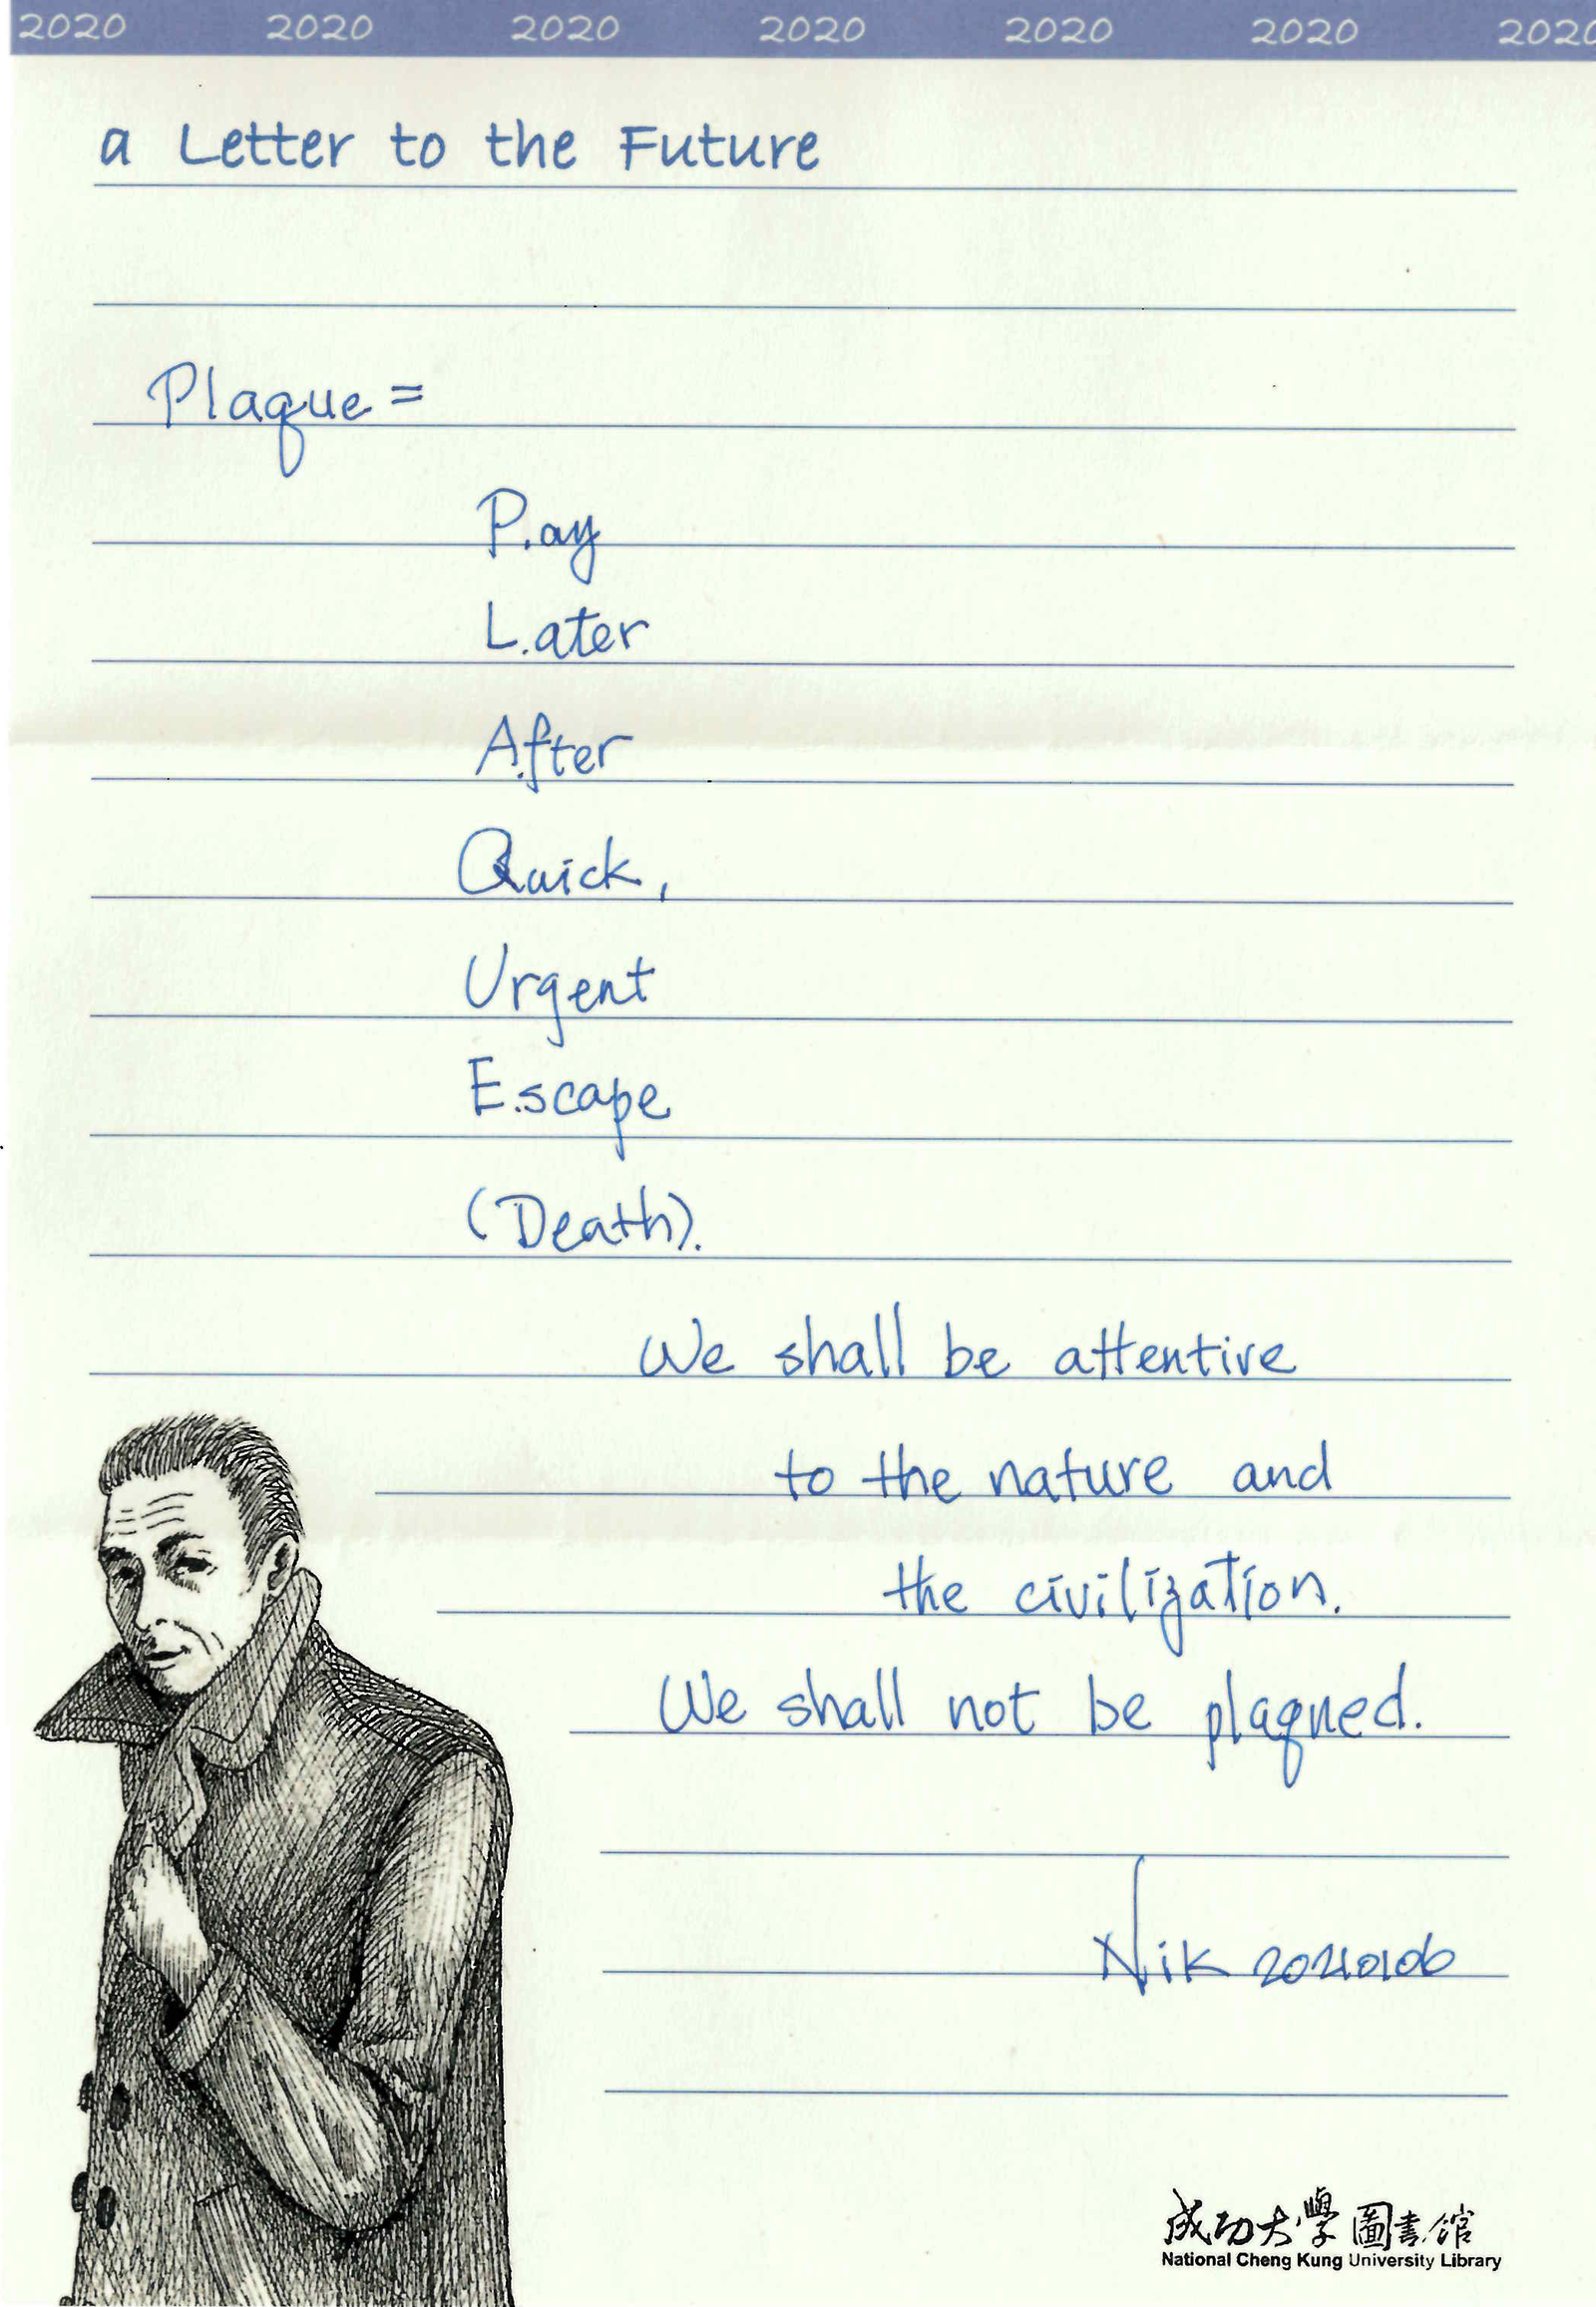 2020 2020 2020 2020 2020 2020 2020
a Letter to the Future
Plaque =
P.ay
L.ater
A.fter
Quick,
Urgent
E.scape
(Death).
We shall be attentive
to the nature and
the civilization.
We shall not be plaqued.
Nik 20210106
成功大學圖書館
National Cheng Kung University Library